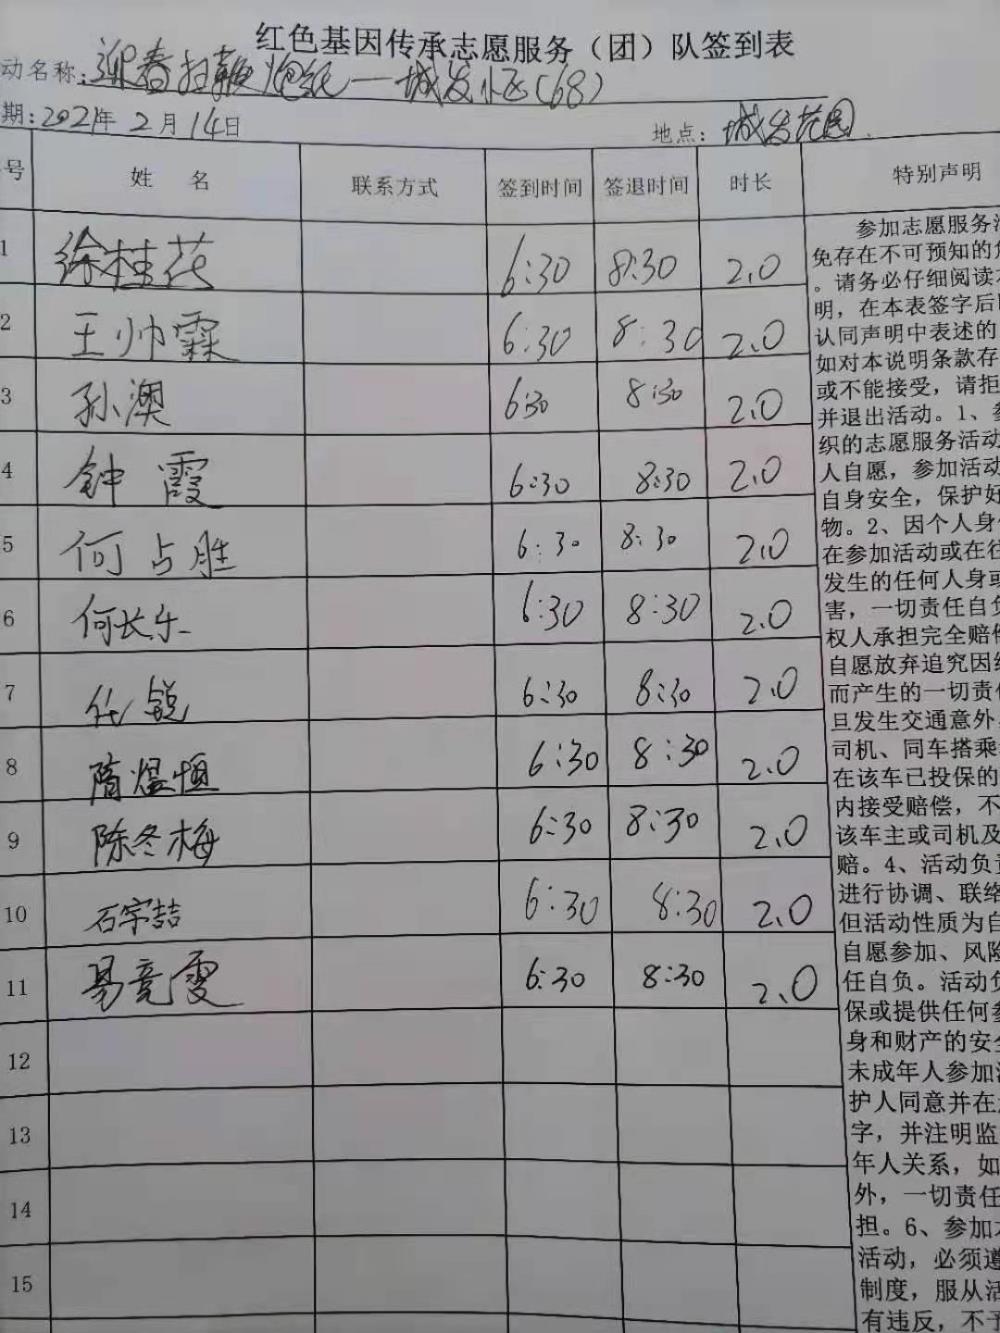 红色基因传承志愿服务（团）队签到表
动名称：迎春扫鞭炮纸一城发小区（68）
期：2021年2月14日 地点：城发花园
号 姓 名 联系方式 签到时间 签退时间 时长 特别声明
1 徐桂花 6:30 8:30 2.0
2 王帅霖 6:30 8:30 2.0
3 孙澳 6:30 8:30 2.0
4 钟霞 6:30 8:30 2.0
5 何占胜 6:30 8:30 2.0
6 何长乐 6:30 8:30 2.0
7 任锐 6:30 8:30 2.0
8 隋煜恒 6:30 8:30 2.0
9 陈冬梅 6:30 8:30 2.0
10 石宇喆 6:30 8:30 2.0
11 易竞雯 6:30 8:30 2.0
12
13
14
15
参加志愿服务活
免存在不可预知的危
。请务必仔细阅读本
明，在本表签字后即
认同声明中表述的
如对本说明条款存
或不能接受，请拒
并退出活动。1、参
织的志愿服务活动
人自愿，参加活动
自身安全，保护好
物。2、因个人身
在参加活动或在往
发生的任何人身或
害，一切责任自负
权人承担完全赔偿
自愿放弃追究因
而产生的一切责任
旦发生交通意外
司机、同车搭乘
在该车已投保的
内接受赔偿，不
该车主或司机及
赔。4、活动负责
进行协调、联络
但活动性质为自
自愿参加、风险
任自负。活动负
保或提供任何参
身和财产的安全
未成年人参加活
护人同意并在
字，并注明监
年人关系，如
外，一切责任
担。6、参加本
活动，必须遵
制度，服从活
有违反，不予